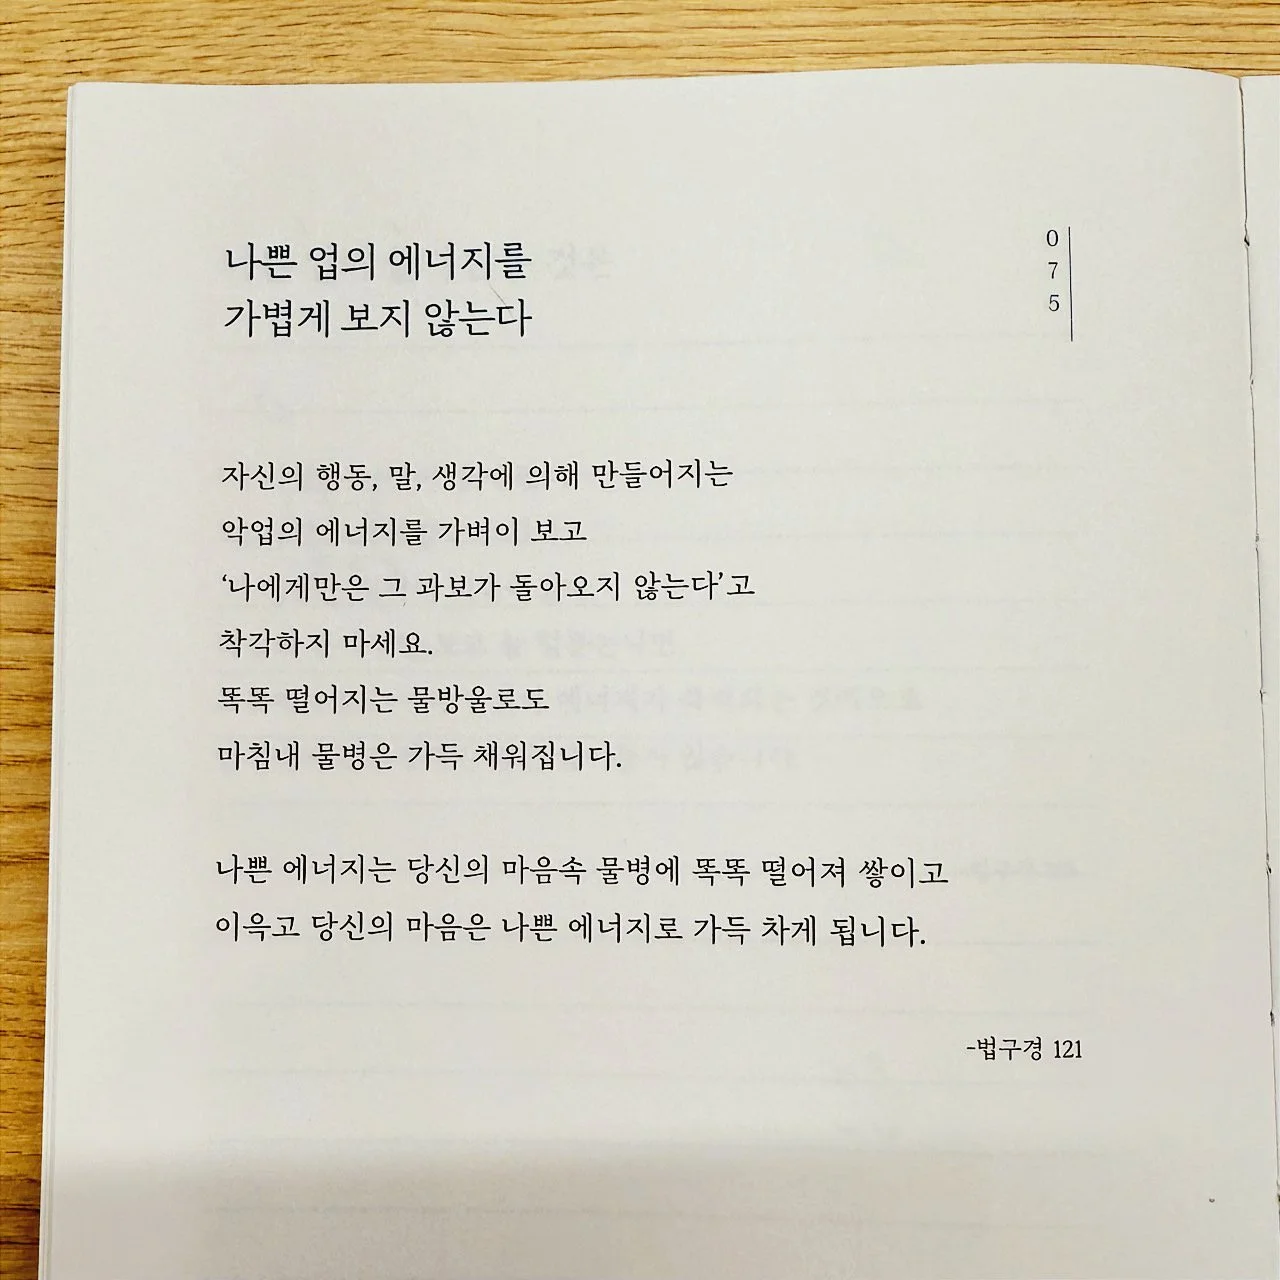 나쁜 업의 에너지를
가볍게 보지 않는다
0
7
5
자신의 행동, 말, 생각에 의해 만들어지는
악업의 에너지를 가벼이 보고
‘나에게만은 그 과보가 돌아오지 않는다’고
착각하지 마세요.
똑똑 떨어지는 물방울로도
마침내 물병은 가득 채워집니다.
나쁜 에너지는 당신의 마음속 물병에 똑똑 떨어져 쌓이고
이윽고 당신의 마음은 나쁜 에너지로 가득 차게 됩니다.
-법구경 121